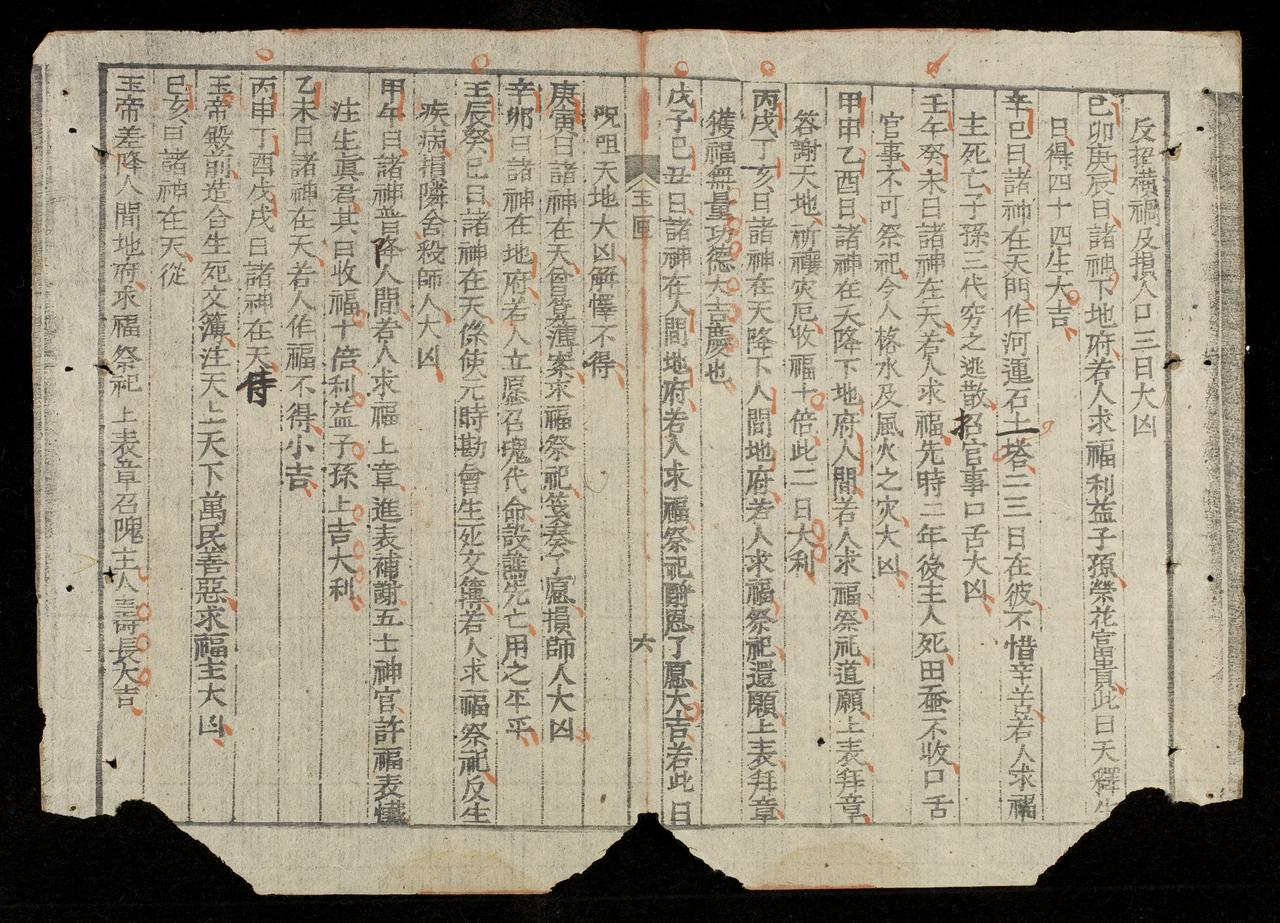 反招橫禍及損人口三日大凶
己卯庚辰日諸神下地府若人求福利益子孫榮花富貴此日天釋生
日得四十四生大吉
辛巳日諸神在天門作河運石土塔二三日在彼不惜辛苦若人求福
主死亡子孫三代窮之逃散招官事口舌大凶
壬午癸未日諸神在天若人求福先時二年後主人死田蚕不收口舌
官事不可祭祀令人格水及風火之灾大凶
甲申乙酉日諸神在天降下地府人間若人求福祭祀道願上表拜章
答謝天地祈禳灾厄收福十倍此二日大利
丙戌丁亥日諸神在天降下人間地府若人求福祭祀還願上表拜章
獲福無量功德大吉慶也
戊子己丑日諸神在人間地府若人求福祭祀謝恩了愿大吉若此日
玉匣
六
呪咀天地大凶解釋不得
庚寅日諸神在天曾算薄案求福祭祀笺奏了愿損師人大凶
辛卯日諸神在地府若人立愿召魂代命設醮先亡用之平平
壬辰癸巳日諸神在天條使元時勘會生死文簿若人求福祭祀反生
疾病損隣舍殺師人大凶
甲午日諸神普降人間若人求福上章進表補謝五土神官許福表懺
注生真君其日收福十倍利益子孫上吉大利
乙未日諸神在天若人作福不得小吉
丙申丁酉戊戌日諸神在天侍
玉帝殿前造合生死文簿注天上天下萬民善惡求福主大凶
己亥日諸神在天從
玉帝差降人間地府求福祭祀上表章召魂主人壽長大吉